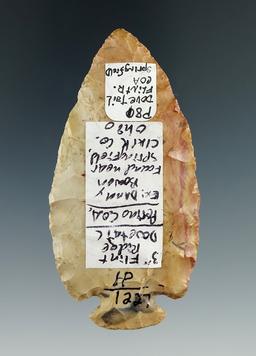 3" Flint
Ridge
Dovetail
Perino COA,
Ex: Danny
Bowen
Found near
Springfield,
Clark Co.
Ohio
P80
DoveTail
Flint R.
COA
Springfield